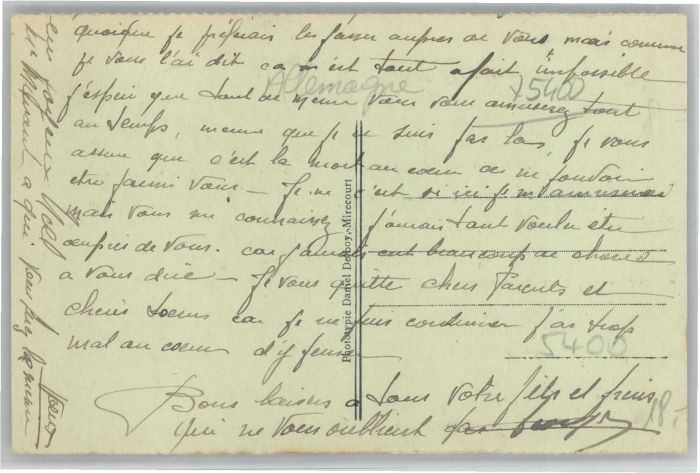 quoique je préférais les passer auprès de vous mais comme
je vous l'ai dit ça m'est tout a fait impossible
j'espère que tout de meme vous vous amuserez tout
au temps, meme que je ne suis pas là, je vous
assure que c'est la mort au cœur de ne pouvoir
etre parmi vous – Je ne c'est si ici je m'amuserai
mais vous me connaissez j'aimais tant vouloir etre
auprès de vous. car j'aurais ont beaucoup de choses
a vous dire – Je vous quitte chers Parents et
cheres soeurs car je ne puis continuer j'ai trop
mal au coeur d'y penser
Bons baisers a tous votre fils et frère
qui ne vous oublient pas
Allemagne
+5400
5400
18.-
Phototypie Daniel Delboy, Mirecourt
un joyeux Noel